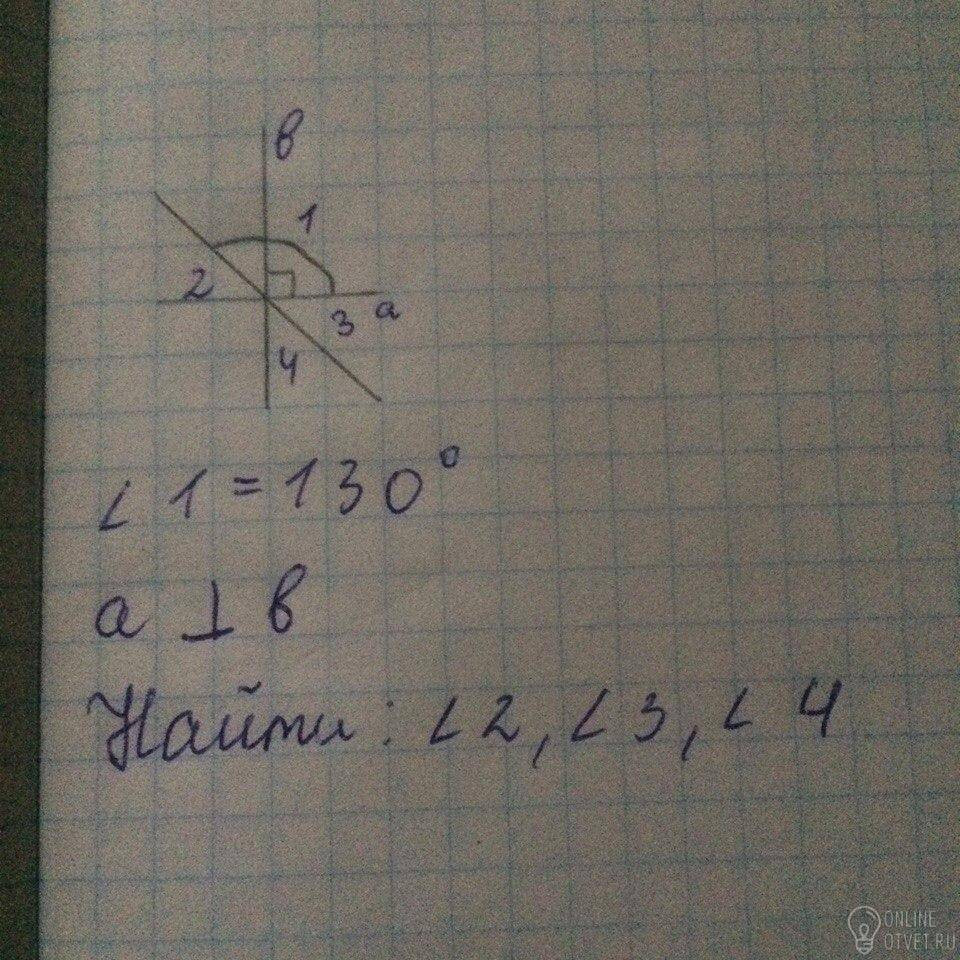 в
1
2
3 а
4
∠ 1 = 130°
а ⊥ в
Найти: ∠ 2, ∠ 3, ∠ 4
ONLINE
OTVET.RU